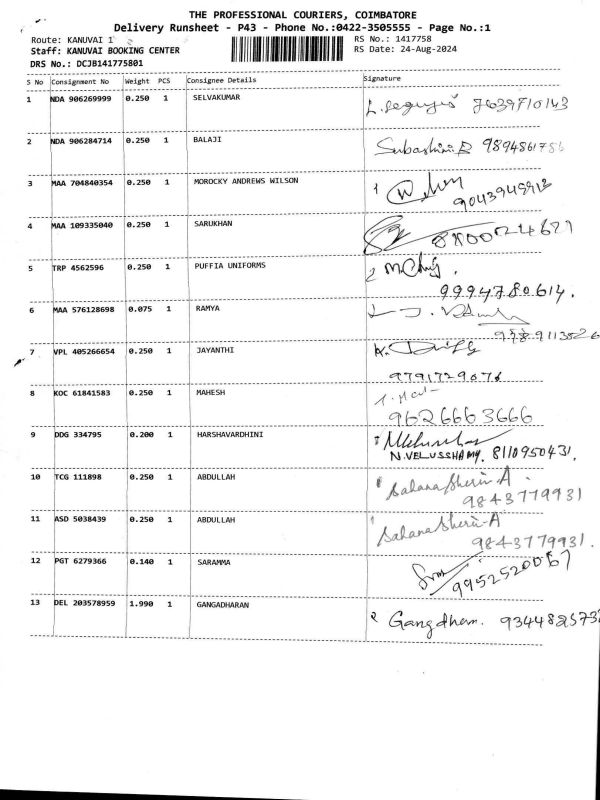 THE PROFESSIONAL COURIERS, COIMBATORE
Delivery Runsheet - P43 - Phone No.:0422-3505555 - Page No.:1
Route: KANUVAI 1
RS No.: 1417758
Staff: KANUVAI BOOKING CENTER
RS Date: 24-Aug-2024
DRS No.: DCJB141775801
S No Consignment No Weight PCS Consignee Details Signature
1 NDA 906269999 0.250 1 SELVAKUMAR 7639710143
2 NDA 906284714 0.250 1 BALAJI Subashini.B 9894861786
3 MAA 704840354 0.250 1 MOROCKY ANDREWS WILSON 1
9043949912
4 MAA 109335040 0.250 1 SARUKHAN
5 TRP 4562596 0.250 1 PUFFIA UNIFORMS 2
9994780614.
6 MAA 576128698 0.075 1 RAMYA
7 VPL 405266654 0.250 1 JAYANTHI
9791729676
8 KOC 61841583 0.250 1 MAHESH
9626663666
9 DDG 334795 0.200 1 HARSHAVARDHINI
N.VELUSSHAMY. 8110950431.
10 TCG 111898 0.250 1 ABDULLAH Sahana Sherin-A
9843779931
11 ASD 5038439 0.250 1 ABDULLAH Sahana Sherin-A
9843779931.
12 PGT 6279366 0.140 1 SARAMMA
9952520067
13 DEL 203578959 1.990 1 GANGADHARAN 2 Gangdham. 934482573